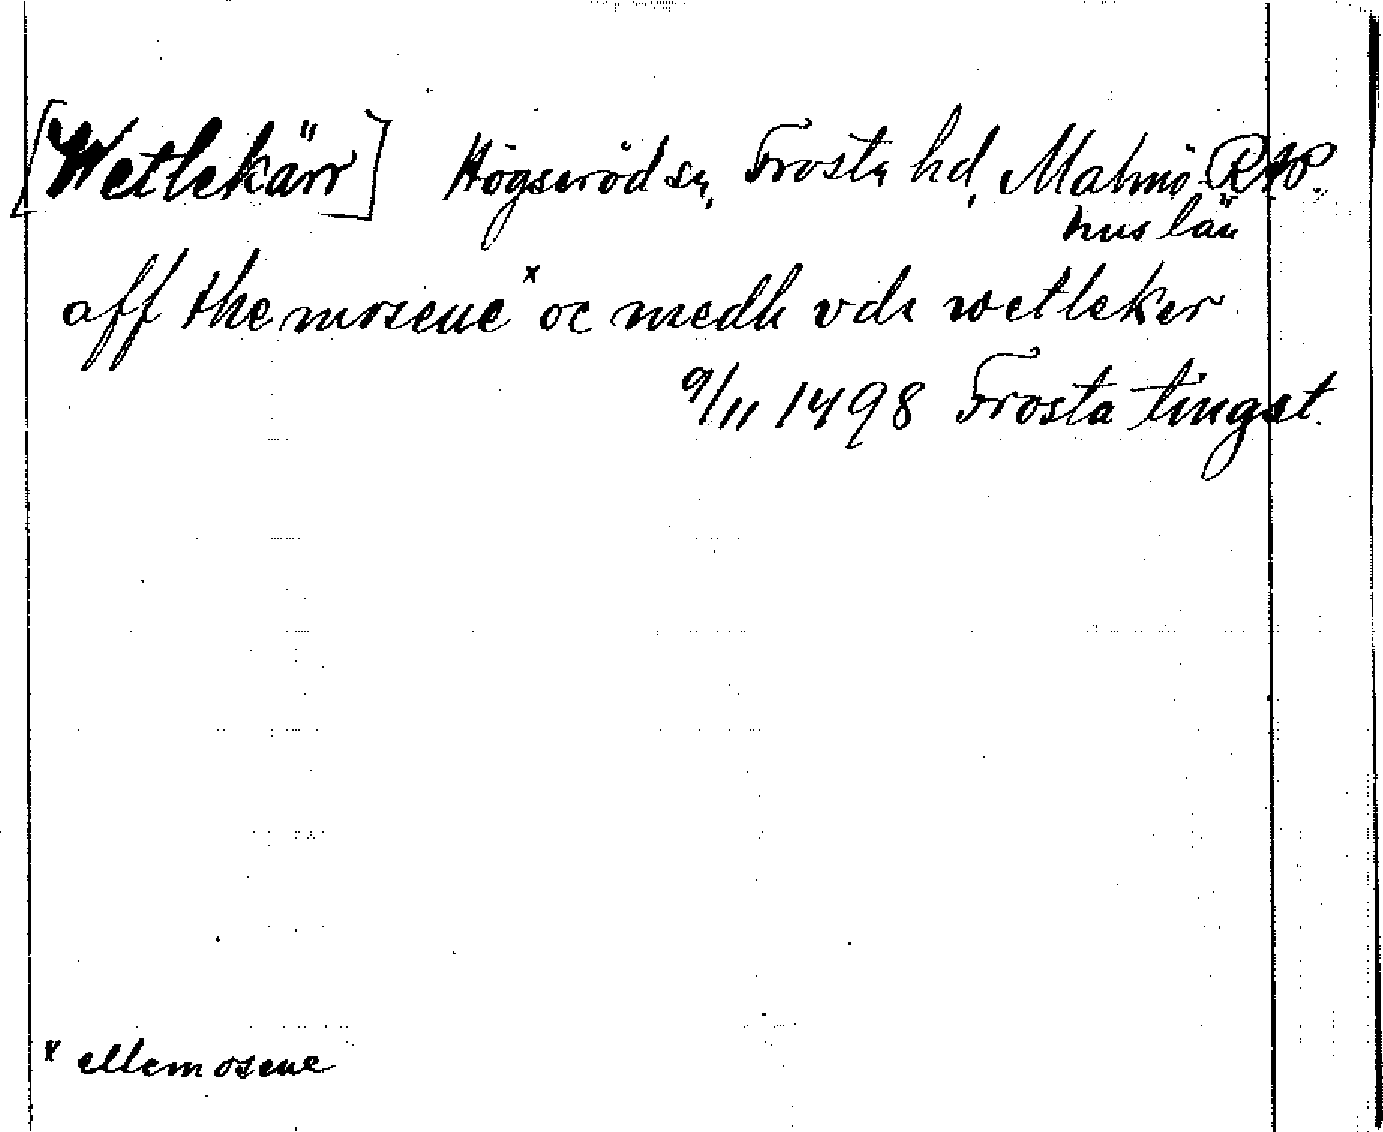 [Wetlekärr] Högseröd sn, Frosta hd, Malmö RAP.
hus län
aff the mosene x oc medh vdi wetleker
9/11 1498 Frosta tingst.
x ellemosene